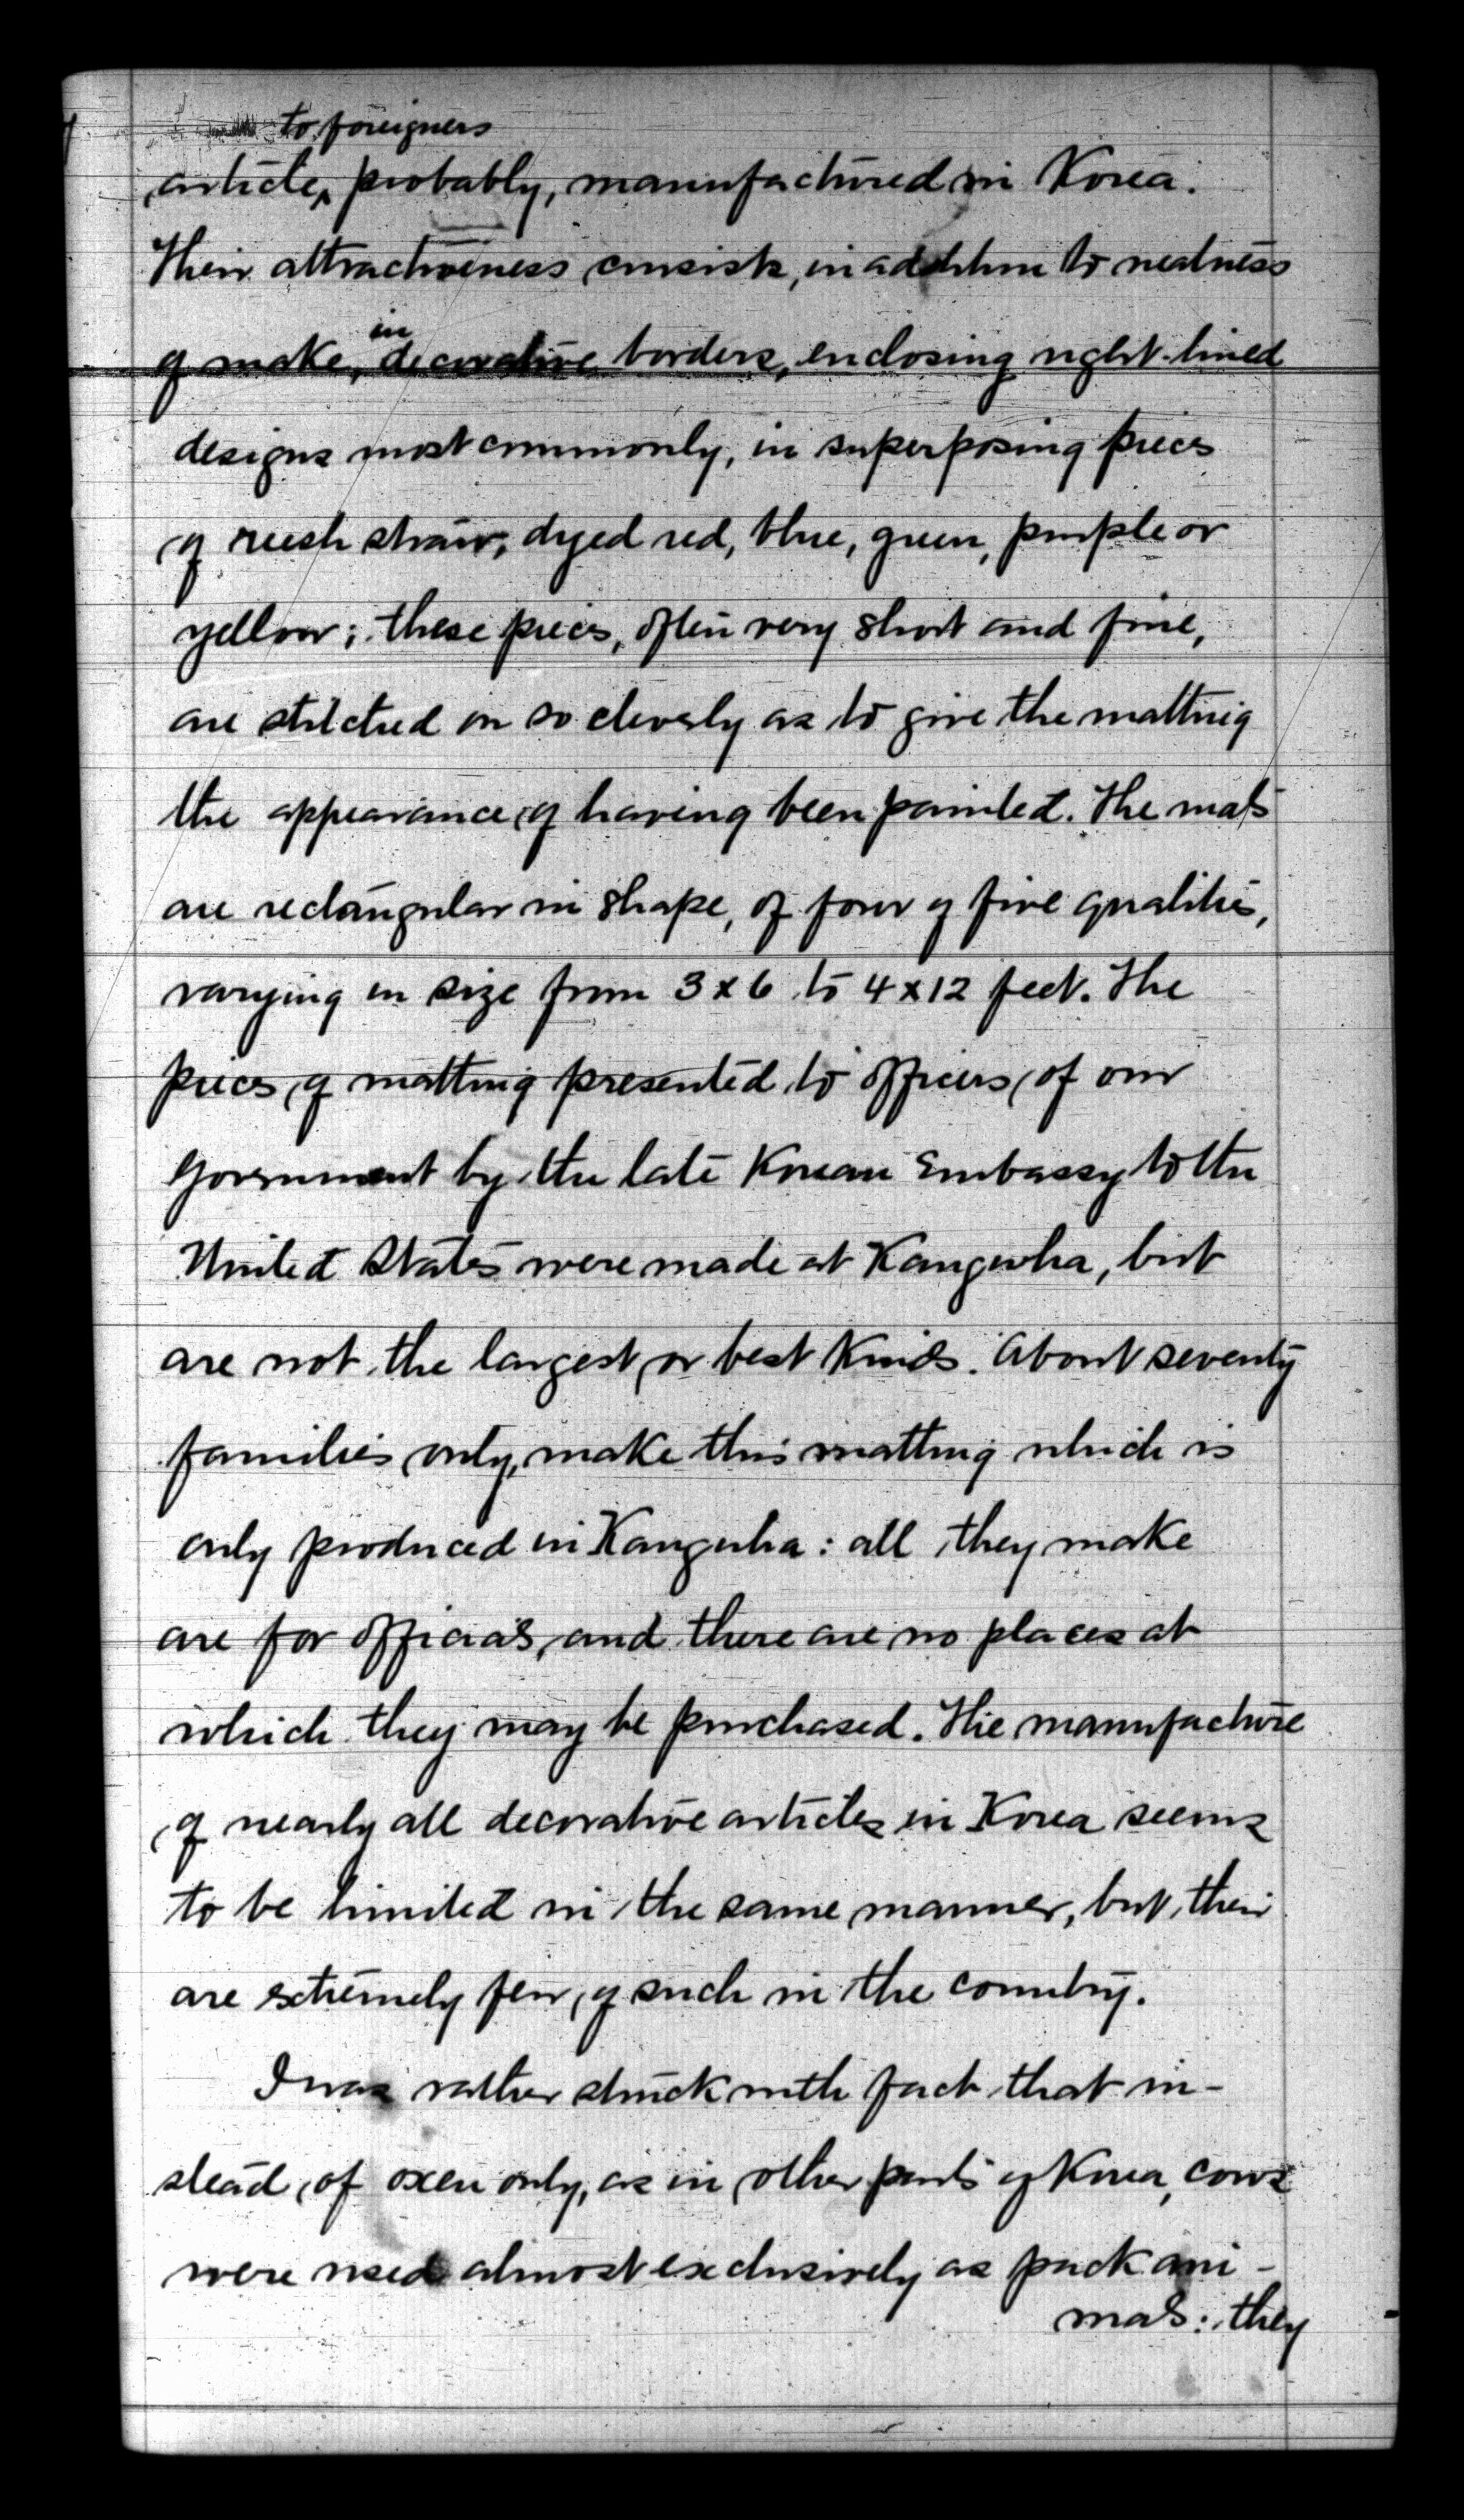 to foreigners
article, probably, manufactured in Korea.
Their attractiveness consists, in addition to neatness
in
of make, decorative borders, enclosing right-lined
designs most commonly, in superposing pieces
of rush straw, dyed red, blue, green, purple or
yellow; these pieces, often very short and fine,
are stitched on so cleverly as to give the matting
the appearance of having been painted. The mats
are rectangular in shape, of four or five qualities,
varying in size from 3 x 6 to 4 x 12 feet. The
pieces of matting presented to officers of our
Government by the late Korean Embassy to the
United States were made at Kangwha, but
are not the largest or best kinds. About seventy
families only, make this matting which is
only produced in Kangwha: all they make
are for officials, and there are no places at
which they may be purchased. The manufacture
of nearly all decorative articles in Korea seems
to be limited in the same manner, but their
are extremely few of such in the country.
I was rather struck with fact that in-
stead of oxen only, as in other parts of Korea, cows
were used almost exclusively as pack ani-
mals: they